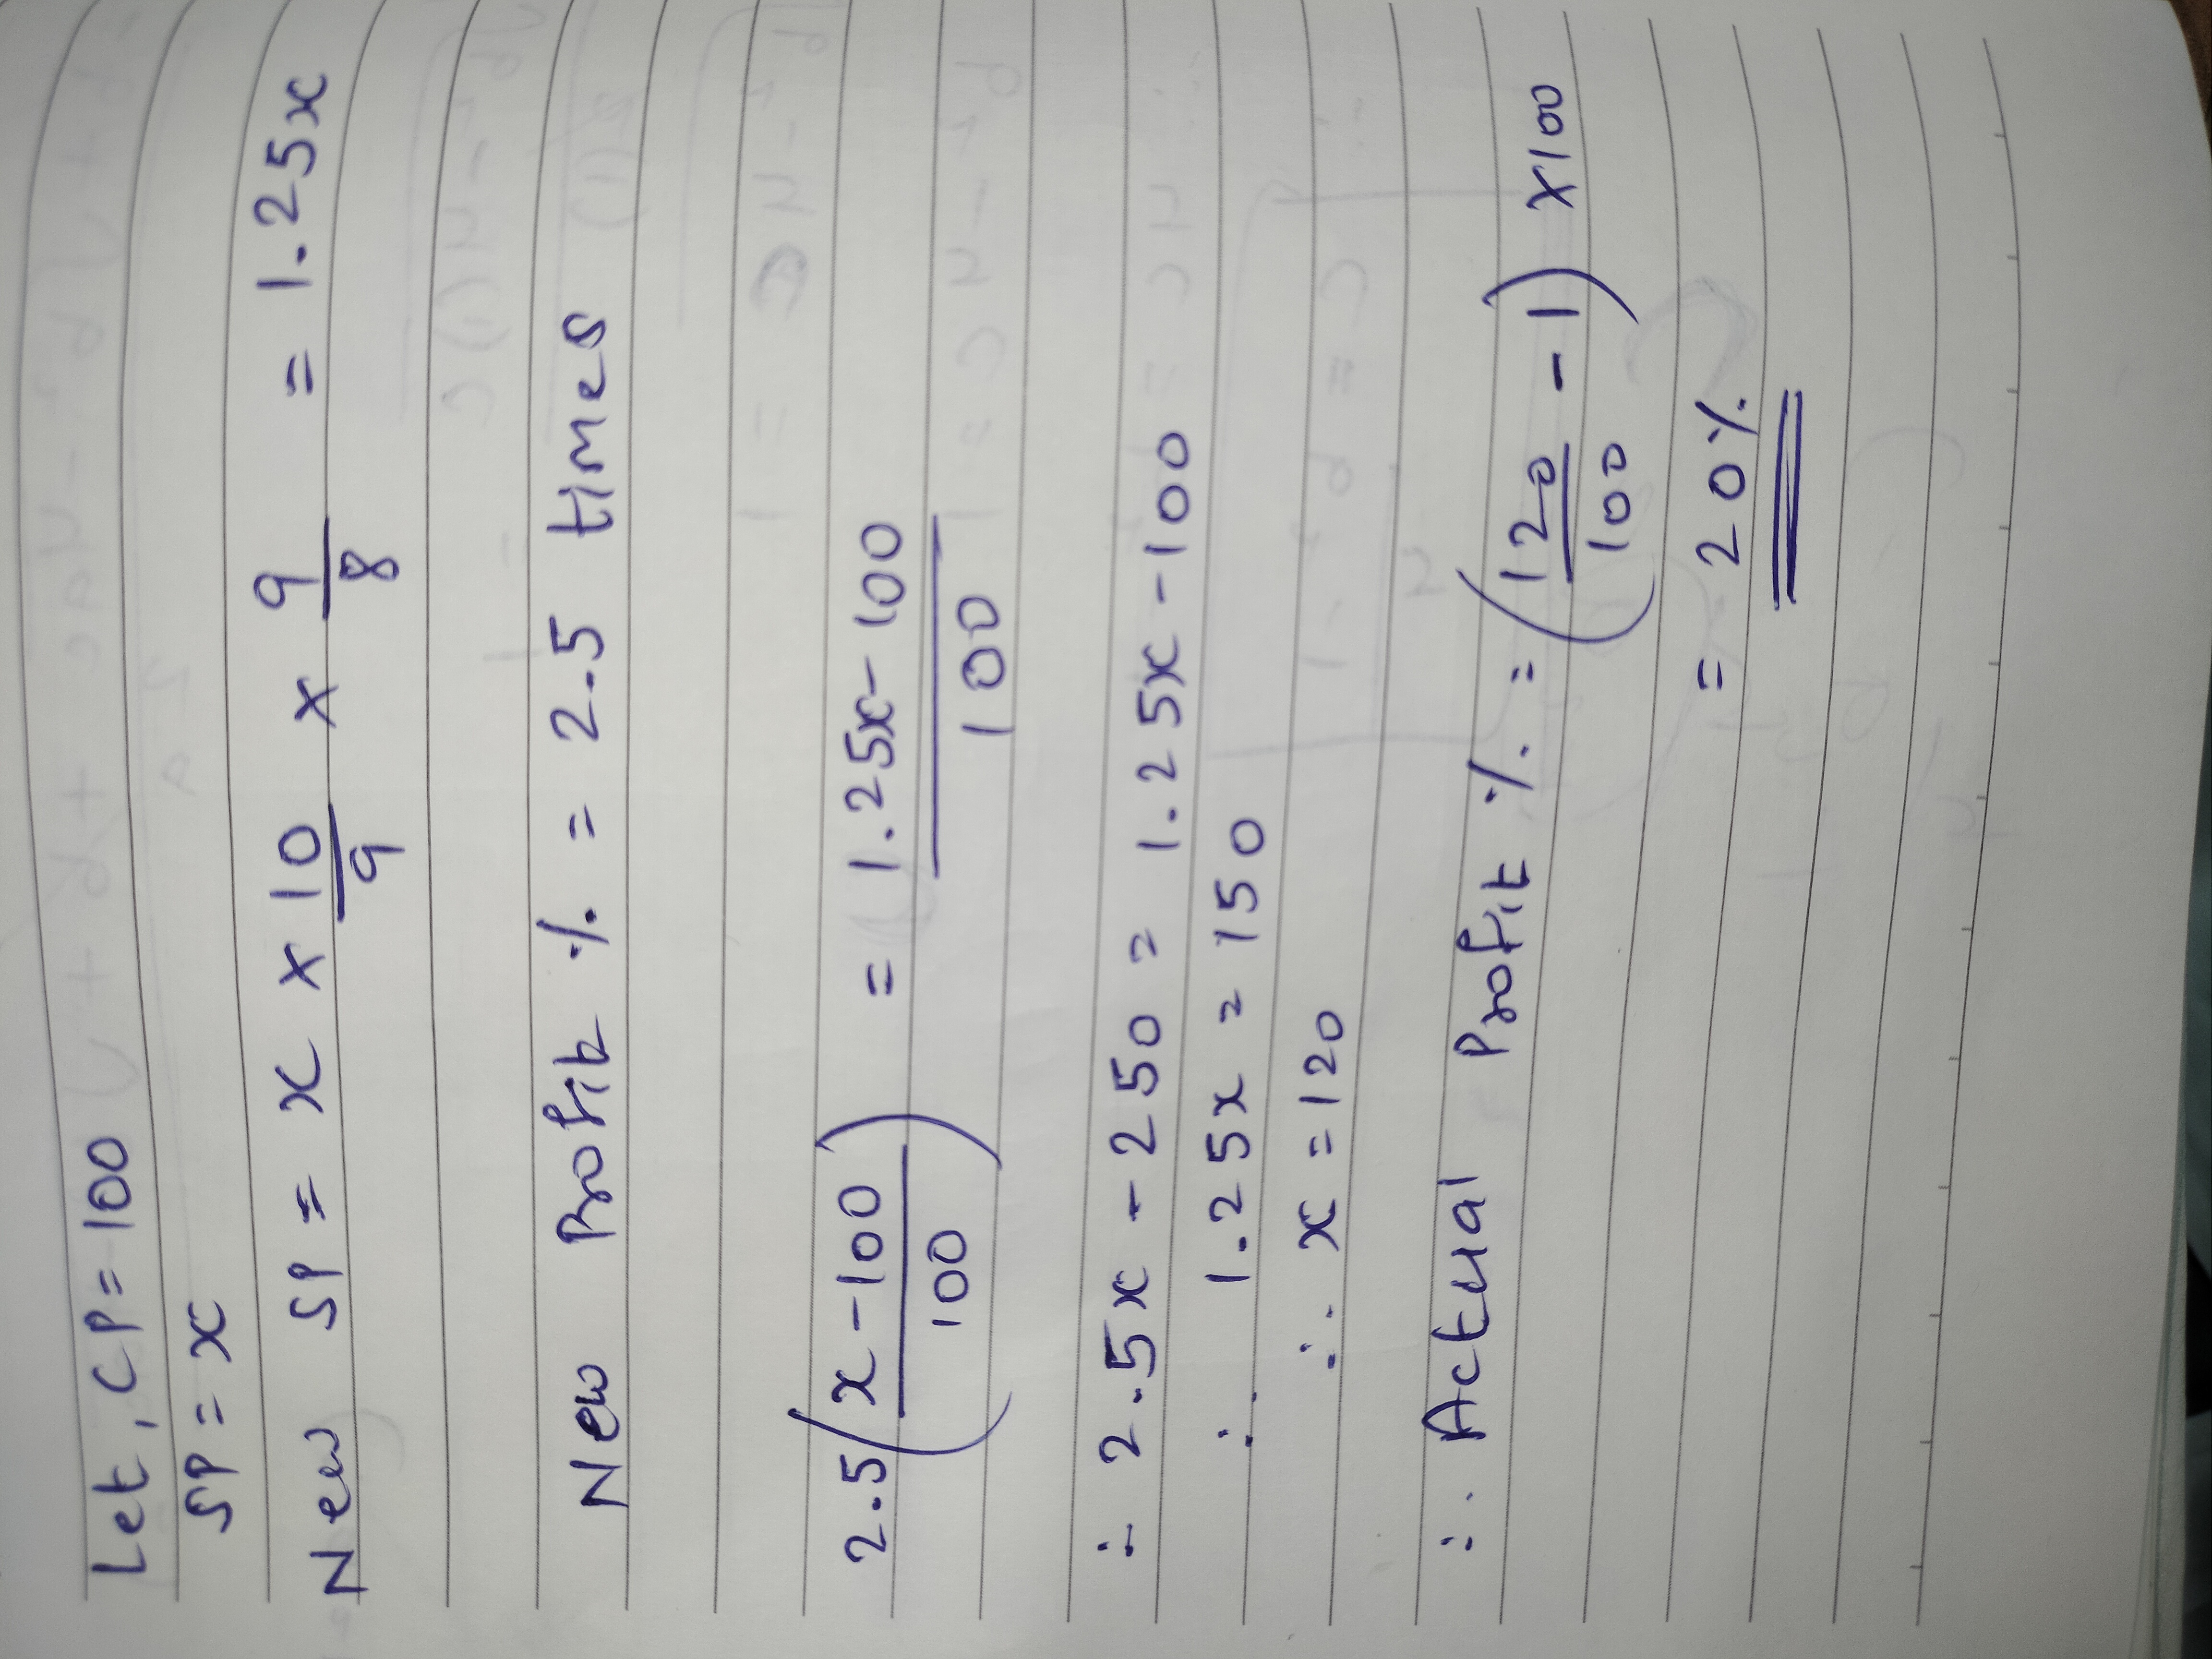 Let, CP = 100
SP = x
New SP = x × 10/9 × 9/8 = 1.25x
New Profit % = 2.5 times
2.5 (x - 100 / 100) = 1.25x - 100 / 100
∴ 2.5x - 250 = 1.25x - 100
∴ 1.25x = 150
∴ x = 120
∴ Actual Profit % = (120/100 - 1) × 100
= 20%